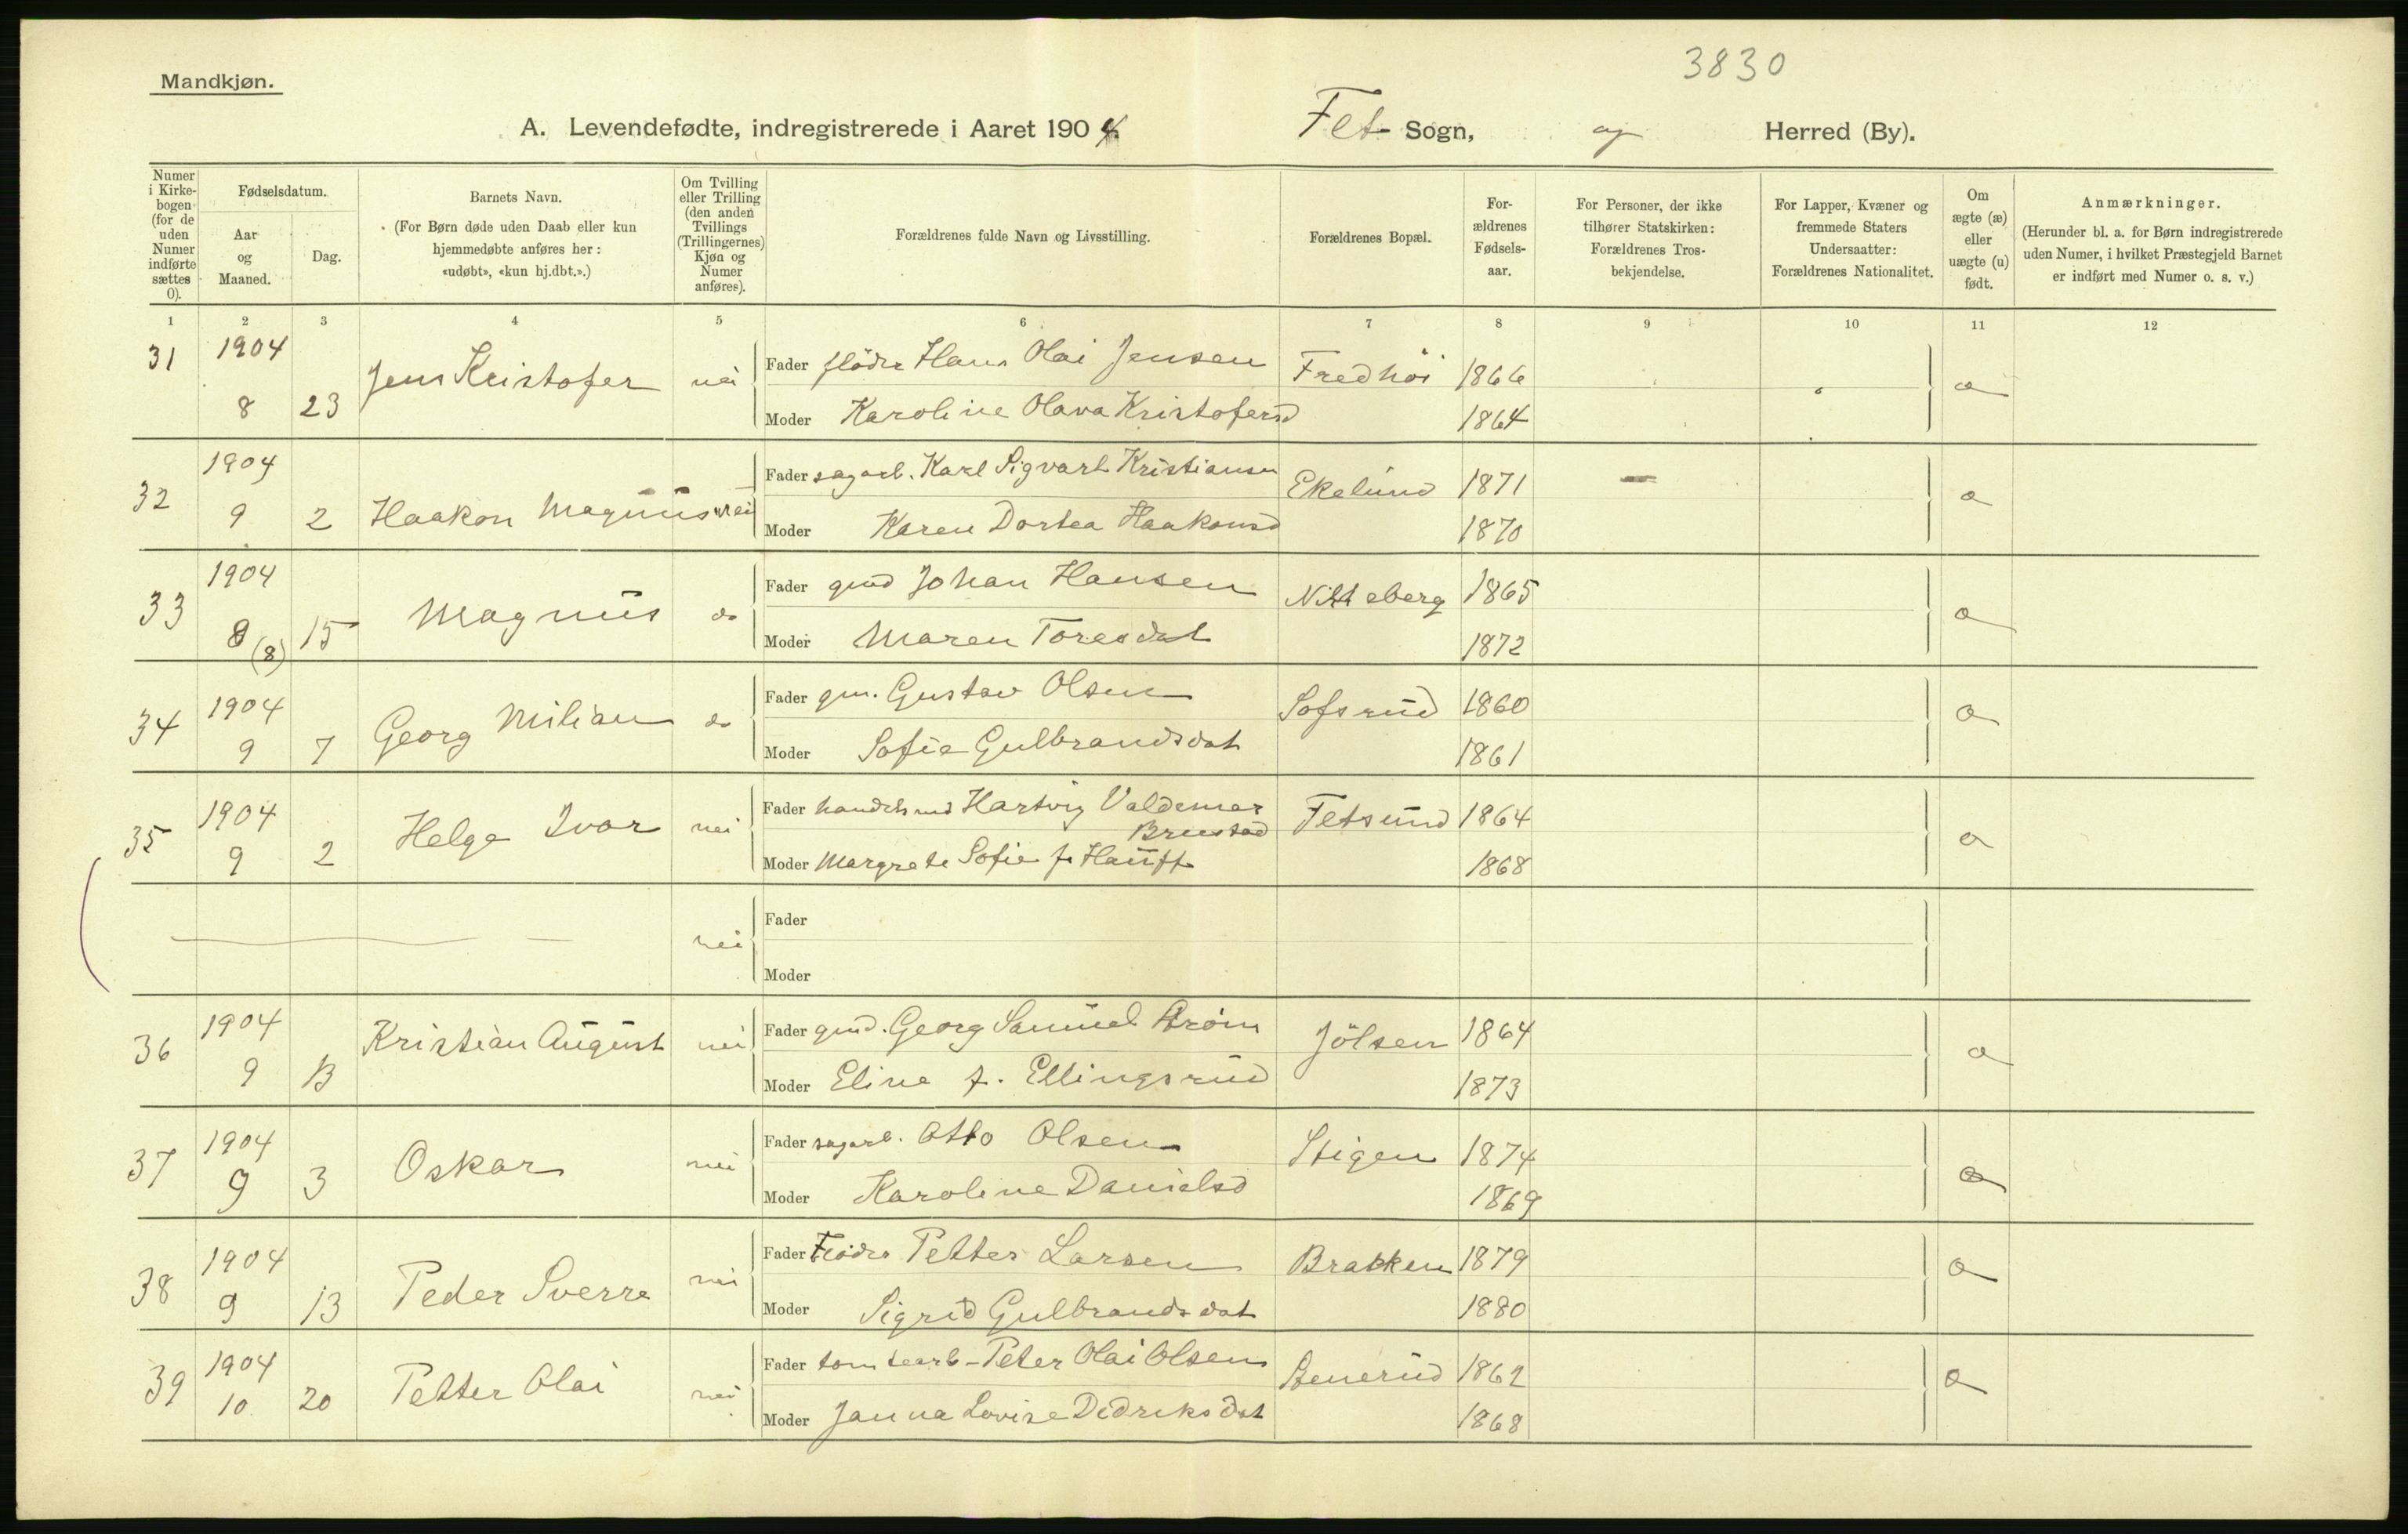 3830
Mandkjøn.
A. Levendefødte, indregistrerede i Aaret 1904 Fet Sogn, og Herred (By).
Numer i Kirkebogen (for de uden Numer indførte sættes 0).
Fødselsdatum.
Aar og Maaned.
Dag.
Barnets Navn.
(For Børn døde uden Daab eller kun hjemmedøbte anføres her: «udøbt», «kun hj.dbt.».)
Om Tvilling eller Trilling (den anden Tvillings (Trillingernes) Kjøn og Numer anføres).
Forældrenes fulde Navn og Livsstilling.
Forældrenes Bopæl.
Forældrenes Fødselsaar.
For Personer, der ikke tilhører Statskirken: Forældrenes Trosbekjendelse.
For Lapper, Kvæner og fremmede Staters Undersaatter: Forældrenes Nationalitet.
Om ægte (æ) eller uægte (u) født.
Anmærkninger.
(Herunder bl. a. for Børn indregistrerede uden Numer, i hvilket Præstegjeld Barnet er indført med Numer o. s. v.)
1 2 3 4 5 6 7 8 9 10 11 12
31 1904 Jens Kristofer nei Fader fløder Hans Olai Jensen Fredhöi 1866 æ
8 23 Moder Karoline Olava Kristofersd 1864
32 1904 Haakon Magnus nei Fader sagarb. Karl Sigvart Kristiansen Ekelund 1871 — æ
9 2 Moder Karen Dortea Haakonsd 1870
33 1904 Magnus do Fader gmd Johan Hansen Nitteberg 1865 æ
8 (8) 15 Moder Maren Toresdat 1872
34 1904 Georg Milian do Fader gm. Gustav Olsen Sofsrud 1860 æ
9 7 Moder Sofie Gulbrandsdat 1861
35 1904 Helge Ivar nei Fader handelsmd Hartvig Valdemar Brustad Fetsund 1864 æ
9 2 Moder Margrete Sofie f. Hauff 1868
nei Fader
Moder
36 1904 Kristian August nei Fader gmd. Georg Samuel Strøm Jölsen 1864 æ
9 13 Moder Eline f. Ellingsrud 1873
37 1904 Oskar nei Fader sagarb. Otto Olsen Stigen 1874 æ
9 3 Moder Karoline Danielsd 1869
38 1904 Peder Sverre nei Fader Fløder Petter Larsen Brakken 1879 æ
9 13 Moder Sigrid Gulbrandsdat 1880
39 1904 Petter Olai nei Fader tomtearb- Peter Olai Olsen Stenerud 1862 æ
10 20 Moder Janna Lovise Dedriksdat 1868